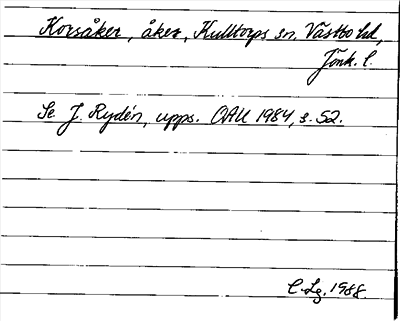 Korsåker, åker, Kulltorps sn. Västbo hd,
Jönk. l.
Se J. Rydén, upps. OAU 1984, s. 52.
C-Lg. 1988.